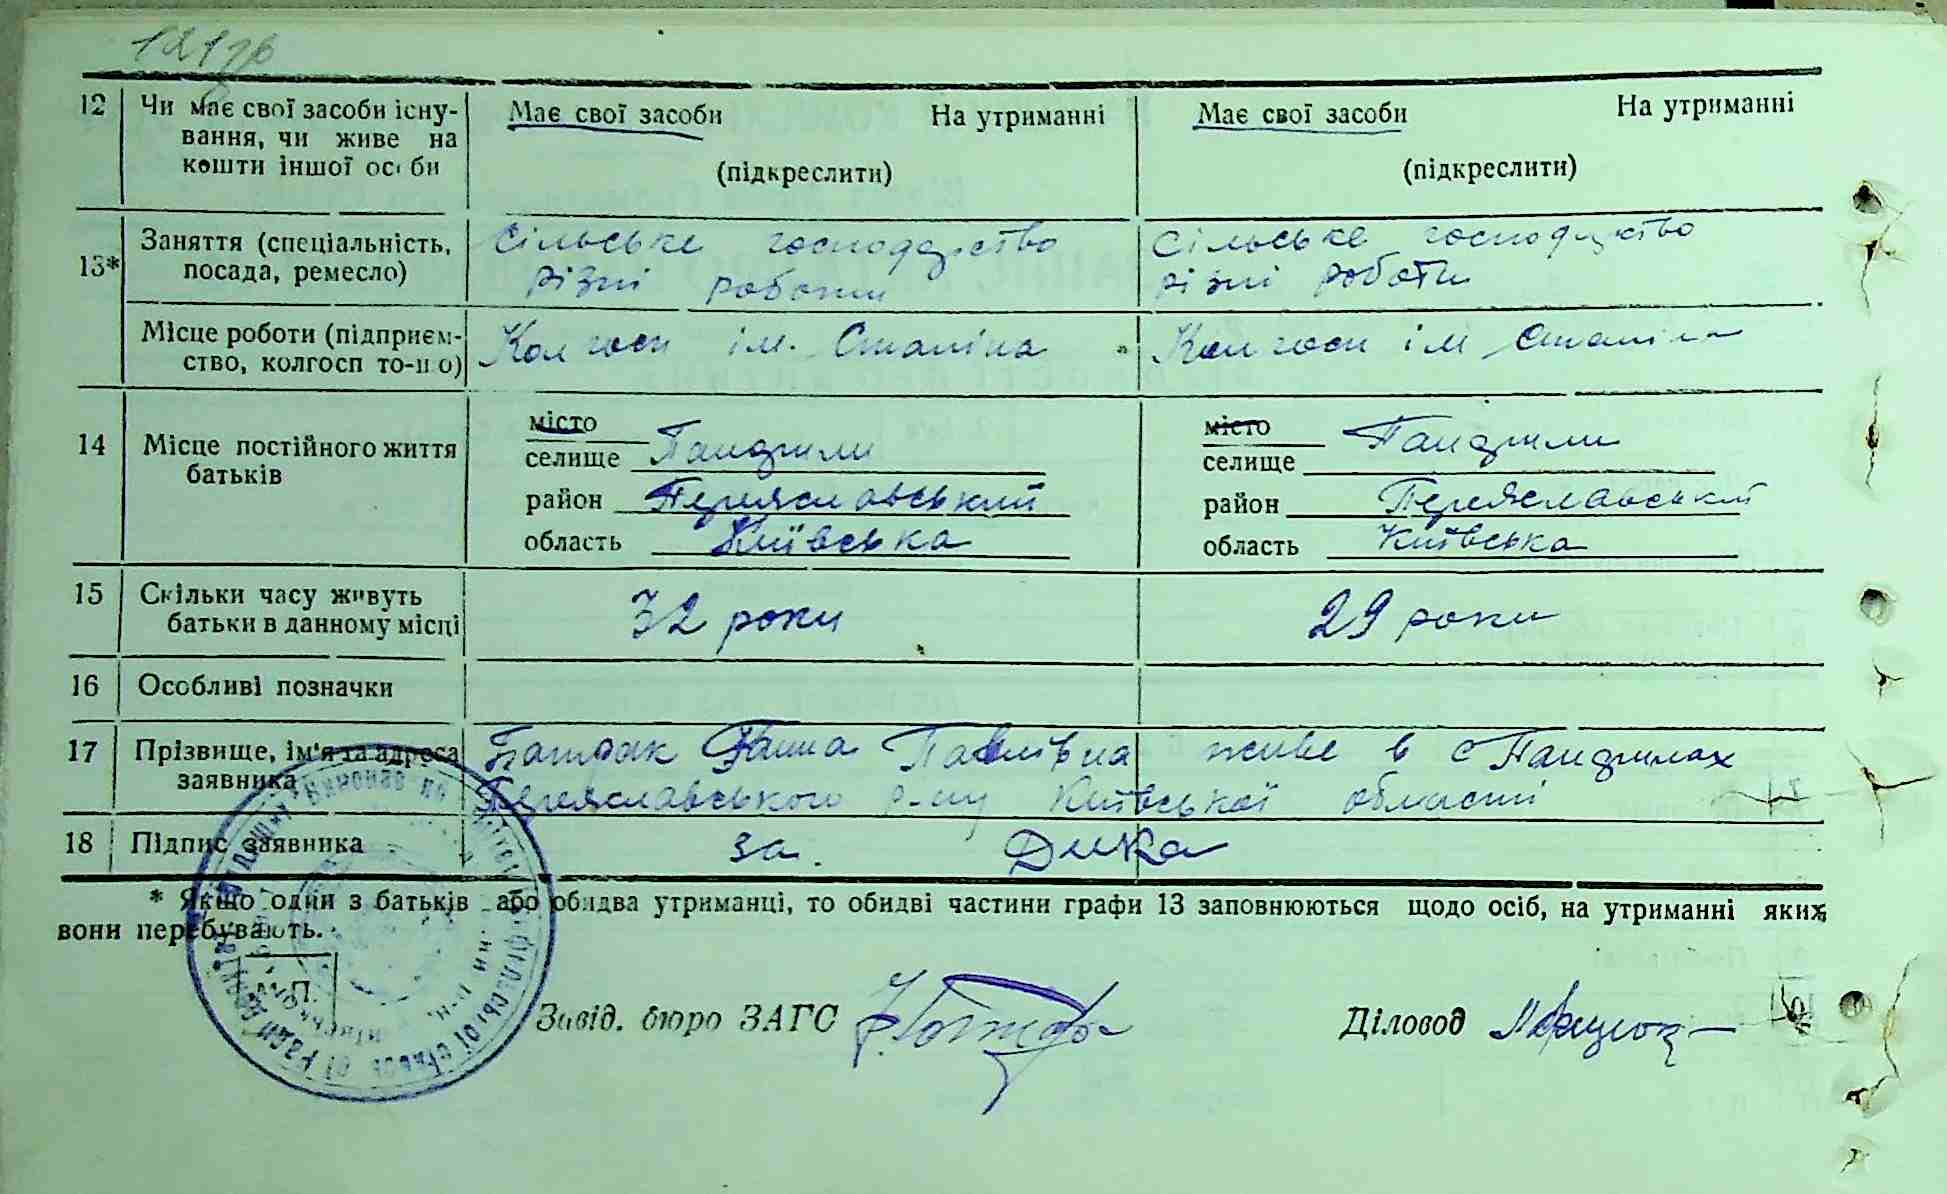 12 Чи має свої засоби існу- Має свої засоби На утриманні Має свої засоби На утриманні
вання, чи живе на
кошти іншої особи (підкреслити) (підкреслити)
13* Заняття (спеціальність, Сільське господарство Сільське господарство
посада, ремесло) різні роботи різні роботи
Місце роботи (підприєм- Колгосп ім. Сталіна Колгосп ім Сталіна
ство, колгосп то-що)
14 Місце постійного життя місто місто
батьків селище Пандрили селище Пандрили
район Переяславський район Переяславський
область Київська область Київська
15 Скільки часу живуть 32 роки 29 роки
батьки в данному місці
16 Особливі позначки
17 Прізвище, ім'я та адреса Павлівна живе в с Пандрилах
заявника Переяславського р-ну Київської області
18 Підпис заявника за. Дика
* Якщо один з батьків або обидва утриманці, то обидві частини графи 13 заповнюються щодо осіб, на утриманні яких
вони перебувають.
М.П.
Завід. бюро ЗАГС Діловод